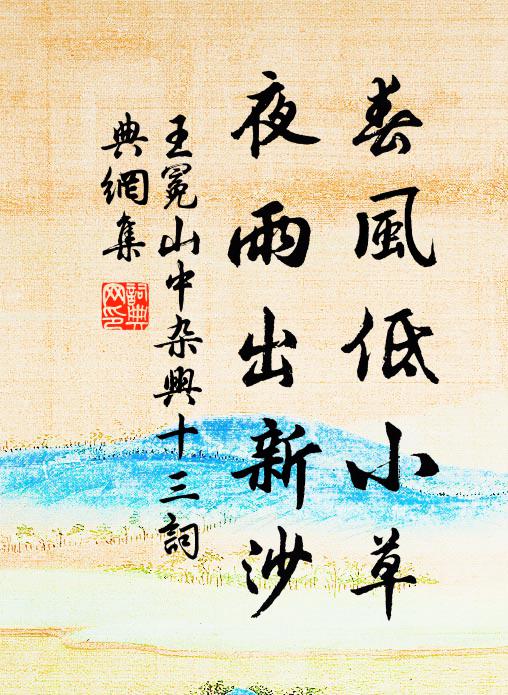 春風低小草
夜雨出新沙
王冕山中杂興十三詞
典網集
詞典
网印